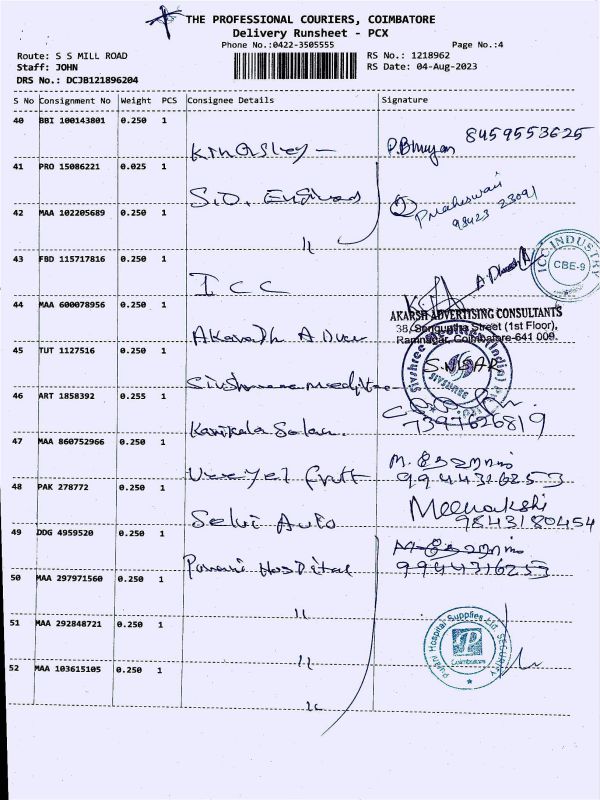 THE PROFESSIONAL COURIERS, COIMBATORE
Delivery Runsheet - PCX
Phone No.:0422-3505555 Page No.:4
Route: S S MILL ROAD RS No.: 1218962
Staff: JOHN RS Date: 04-Aug-2023
DRS No.: DCJB121896204
S No Consignment No Weight PCS Consignee Details Signature
40 BBI 100143801 0.250 1
Kingsley - P.Bhuyan 8459553625
41 PRO 15086221 0.025 1
S.D. P.Maheswari
98423 23091
42 MAA 102205689 0.250 1
"
43 FBD 115717816 0.250 1
ICC
ICC INDUSTRY
CBE-9
44 MAA 600078956 0.250 1
AKARSH ADVERTISING CONSULTANTS
38, Senguptha Street (1st Floor),
Ramnagar, Coimbatore-641 009.
45 TUT 1127516 0.250 1
SIVSHREE
46 ART 1858392 0.255 1
7397626819
47 MAA 860752966 0.250 1
9944316253
48 PAK 278772 0.250 1
Selvi Auto Meenakshi
9843180454
49 DDG 4959520 0.250 1
Hospital 9944316253
50 MAA 297971560 0.250 1
"
51 MAA 292848721 0.250 1
"
Hospital Supplies Ltd SECURITY
Coimbatore
52 MAA 103615105 0.250 1
"